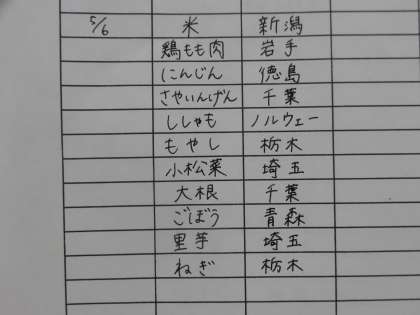 5/6 米 新潟
鶏もも肉 岩手
にんじん 徳島
さやいんげん 千葉
ししゃも ノルウェー
もやし 栃木
小松菜 埼玉
大根 千葉
ごぼう 青森
里芋 埼玉
ねぎ 栃木